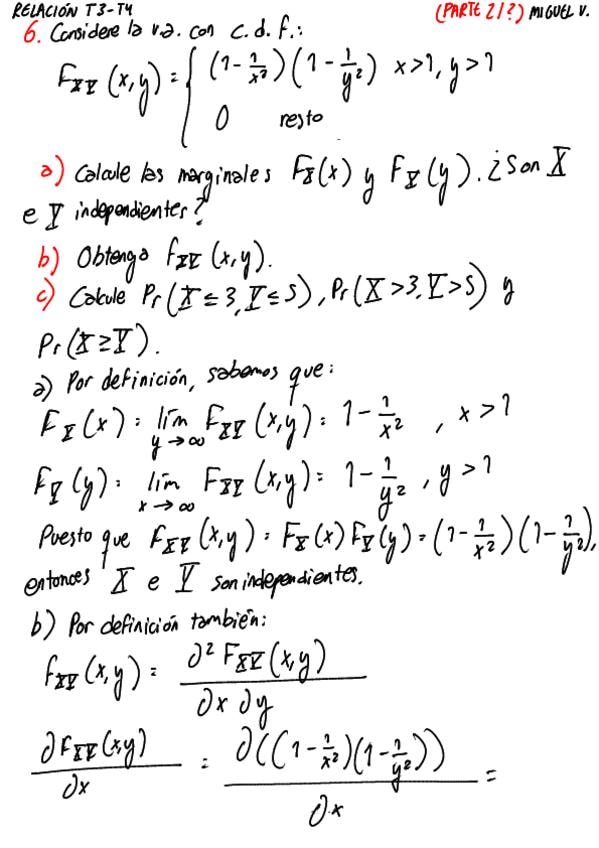 RELACIÓN T3-T4 (PARTE 2/?) MIGUEL V.
6. Considere la v.a. con c.d.f.:
F_XY(x,y) = { (1 - 1/x²)(1 - 1/y²) x>1, y>1
0 resto
a) Calcule las marginales F_X(x) y F_Y(y). ¿Son X
e Y independientes?
b) Obtenga f_XY(x,y).
c) Calcule Pr(X≤3, Y≤5), Pr(X>3, Y>5) y
Pr(X≥Y).
a) Por definición, sabemos que:
F_X(x) = lím_{y→∞} F_XY(x,y) = 1 - 1/x² , x>1
F_Y(y) = lím_{x→∞} F_XY(x,y) = 1 - 1/y² , y>1
Puesto que F_XY(x,y) = F_X(x) F_Y(y) = (1 - 1/x²)(1 - 1/y²),
entonces X e Y son independientes.
b) Por definición también:
f_XY(x,y) = ∂² F_XY(x,y) / ∂x ∂y
∂F_XY(x,y) / ∂x = ∂((1 - 1/x²)(1 - 1/y²)) / ∂x =